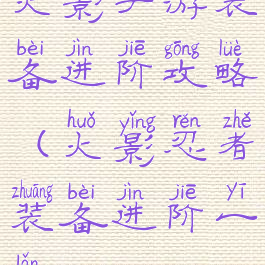 火影手游装
bèi jìn jiē gōng lüè
备进阶攻略
huǒ yǐng rěn zhě
（火影忍者
zhuāng bèi jìn jiē yī
装备进阶一
lǎn